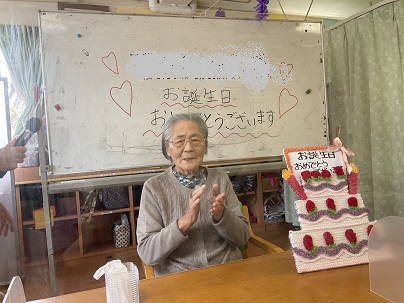 お誕生日
おめでとうございます
お誕生日
おめでとう